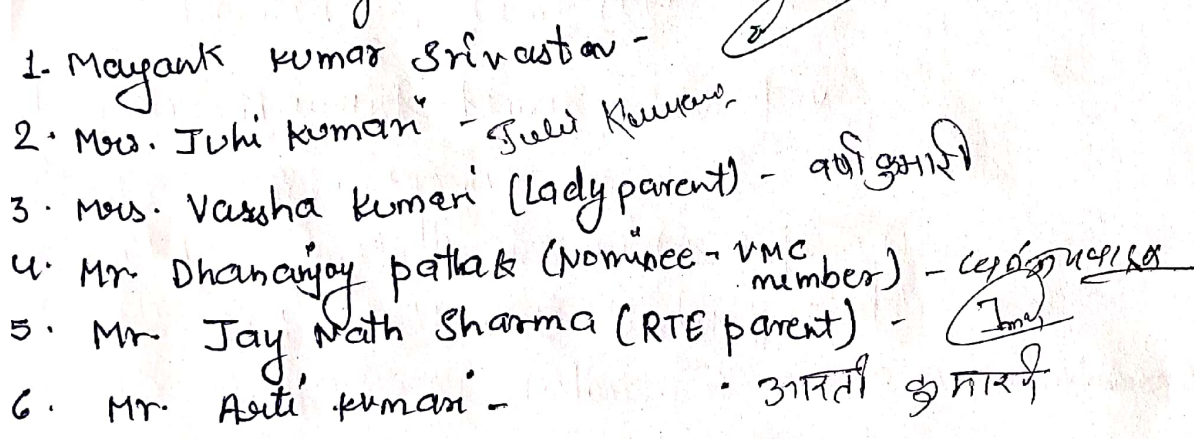 1. Mayank Kumar Srivastav -
2. Mrs. Juhi Kumari - Juhi Kumari
3. Mrs. Varsha Kumari (Lady parent) - वर्षा कुमारी
4. Mr. Dhananjoy pathak (Nominee - VMC member) -
5. Mr. Jay Nath Sharma (RTE parent) -
6. Mr. Arti Kumari - आरती कुमारी